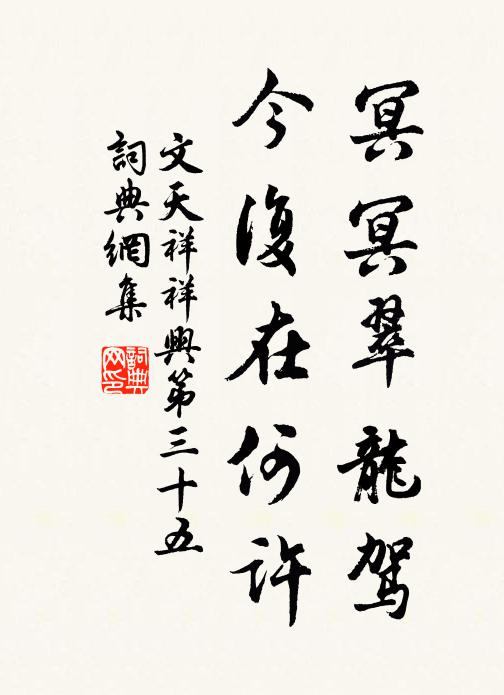 冥冥翠龍駕
今復在何許
文天祥祥興第三十五
詞典網集
詞典网印